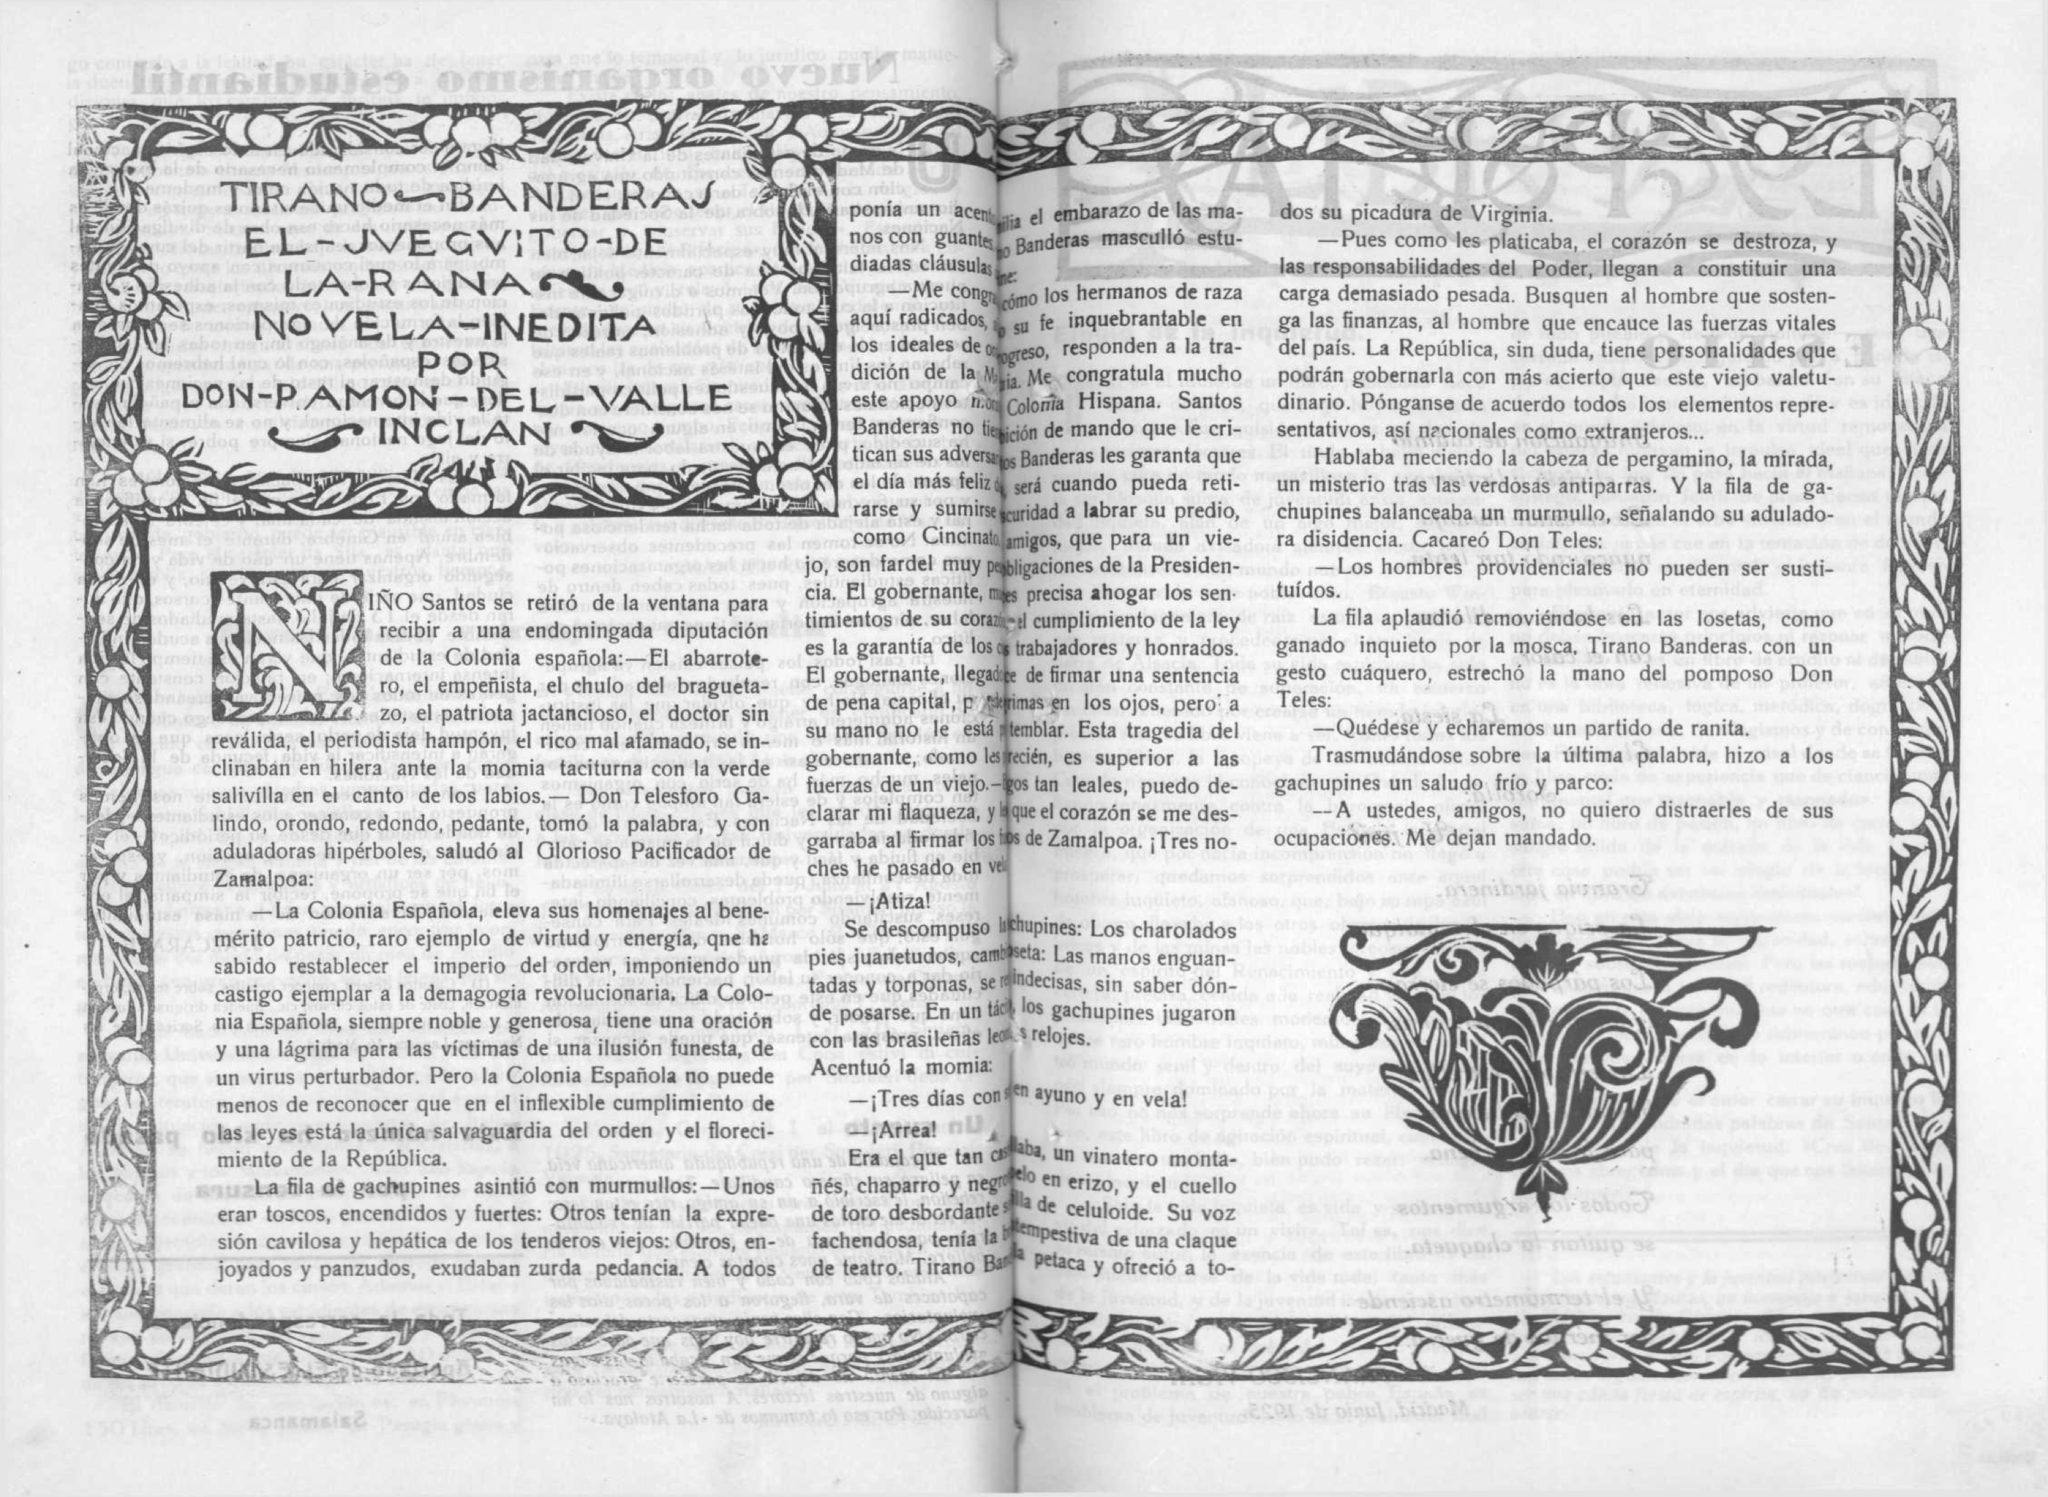 TIRANO BANDERAS
EL-JVEGVITO-DE
LA-RANA
NOVELA-INEDITA
POR
DON-RAMON-DEL-VALLE
INCLAN
NIÑO Santos se retiró de la ventana para
recibir a una endomingada diputación
de la Colonia española:—El abarrote-
ro, el empeñista, el chulo del bragueta-
zo, el patriota jactancioso, el doctor sin
reválida, el periodista hampón, el rico mal afamado, se in-
clinaban en hilera ante la momia taciturna con la verde
salivílla en el canto de los labios.— Don Telesforo Ga-
lindo, orondo, redondo, pedante, tomó la palabra, y con
aduladoras hipérboles, saludó al Glorioso Pacificador de
Zamalpoa:
—La Colonia Española, eleva sus homenajes al bene-
mérito patricio, raro ejemplo de virtud y energía, qne ha
sabido restablecer el imperio del orden, imponiendo un
castigo ejemplar a la demagogia revolucionaria. La Colo-
nia Española, siempre noble y generosa, tiene una oración
y una lágrima para las víctimas de una ilusión funesta, de
un virus perturbador. Pero la Colonia Española no puede
menos de reconocer que en el inflexible cumplimiento de
las leyes está la única salvaguardia del orden y el floreci-
miento de la República.
La fila de gachupines asintió con murmullos:—Unos
eran toscos, encendidos y fuertes: Otros tenían la expre-
sión cavilosa y hepática de los tenderos viejos: Otros, en-
joyados y panzudos, exudaban zurda pedancia. A todos
ponía un acento el embarazo de las ma-
nos con guantes. Banderas masculló estu-
diadas cláusulas
—Me congratula cómo los hermanos de raza
aquí radicados, su fe inquebrantable en
los ideales de orden progreso, responden a la tra-
dición de la Me congratula mucho
este apoyo moral Colonia Hispana. Santos
Banderas no tiene ambición de mando que le cri-
tican sus adversarios Banderas les garanta que
el día más feliz será cuando pueda reti-
rarse y sumirse oscuridad a labrar su predio,
como Cincinato. amigos, que para un vie-
jo, son fardel muy obligaciones de la Presiden-
cia. El gobernante, precisa ahogar los sen-
timientos de su corazón el cumplimiento de la ley
es la garantía de los trabajadores y honrados.
El gobernante, llegado de firmar una sentencia
de pena capital, lágrimas en los ojos, pero a
su mano no le está temblar. Esta tragedia del
gobernante, como les es superior a las
fuerzas de un viejo.— tan leales, puedo de-
clarar mi flaqueza, y que el corazón se me des-
garraba al firmar los de Zamalpoa. ¡Tres no-
ches he pasado en vela
—¡Atiza!
Se descompuso gachupines: Los charolados
pies juanetudos, loseta: Las manos enguan-
tadas y torponas, se indecisas, sin saber dón-
de posarse. En un tácito, los gachupines jugaron
con las brasileñas relojes.
Acentuó la momia:
—¡Tres días con en ayuno y en vela!
—¡Arrea!
Era el que tan un vinatero monta-
ñés, chaparro y negro pelo en erizo, y el cuello
de toro desbordante de celuloide. Su voz
fachendosa, tenía la intempestiva de una claque
de teatro. Tirano petaca y ofreció a to-
dos su picadura de Virginia.
—Pues como les platicaba, el corazón se destroza, y
las responsabilidades del Poder, llegan a constituir una
carga demasiado pesada. Busquen al hombre que sosten-
ga las finanzas, al hombre que encauce las fuerzas vitales
del país. La República, sin duda, tiene personalidades que
podrán gobernarla con más acierto que este viejo valetu-
dinario. Pónganse de acuerdo todos los elementos repre-
sentativos, así nacionales como extranjeros...
Hablaba meciendo la cabeza de pergamino, la mirada,
un misterio tras las verdosas antiparras. Y la fila de ga-
chupines balanceaba un murmullo, señalando su adulado-
ra disidencia. Cacareó Don Teles:
—Los hombres providenciales no pueden ser susti-
tuídos.
La fila aplaudió removiéndose en las losetas, como
ganado inquieto por la mosca, Tirano Banderas. con un
gesto cuáquero, estrechó la mano del pomposo Don
Teles:
—Quédese y echaremos un partido de ranita.
Trasmudándose sobre la última palabra, hizo a los
gachupines un saludo frío y parco:
—A ustedes, amigos, no quiero distraerles de sus
ocupaciones. Me dejan mandado.